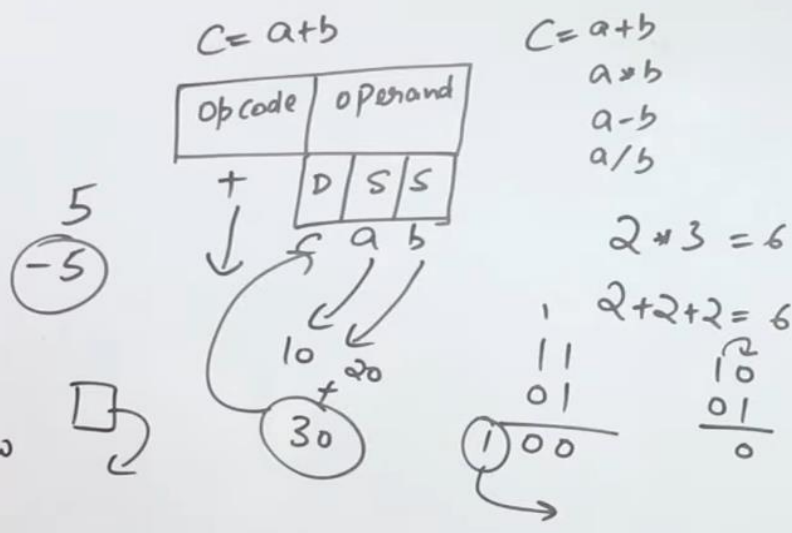 C = a+b
opcode operand
+ D S S
c a b
10 20
+
30
5
-5
C = a+b
a*b
a-b
a/b
2*3 = 6
2+2+2 = 6
1
11
01
100
10
01
0